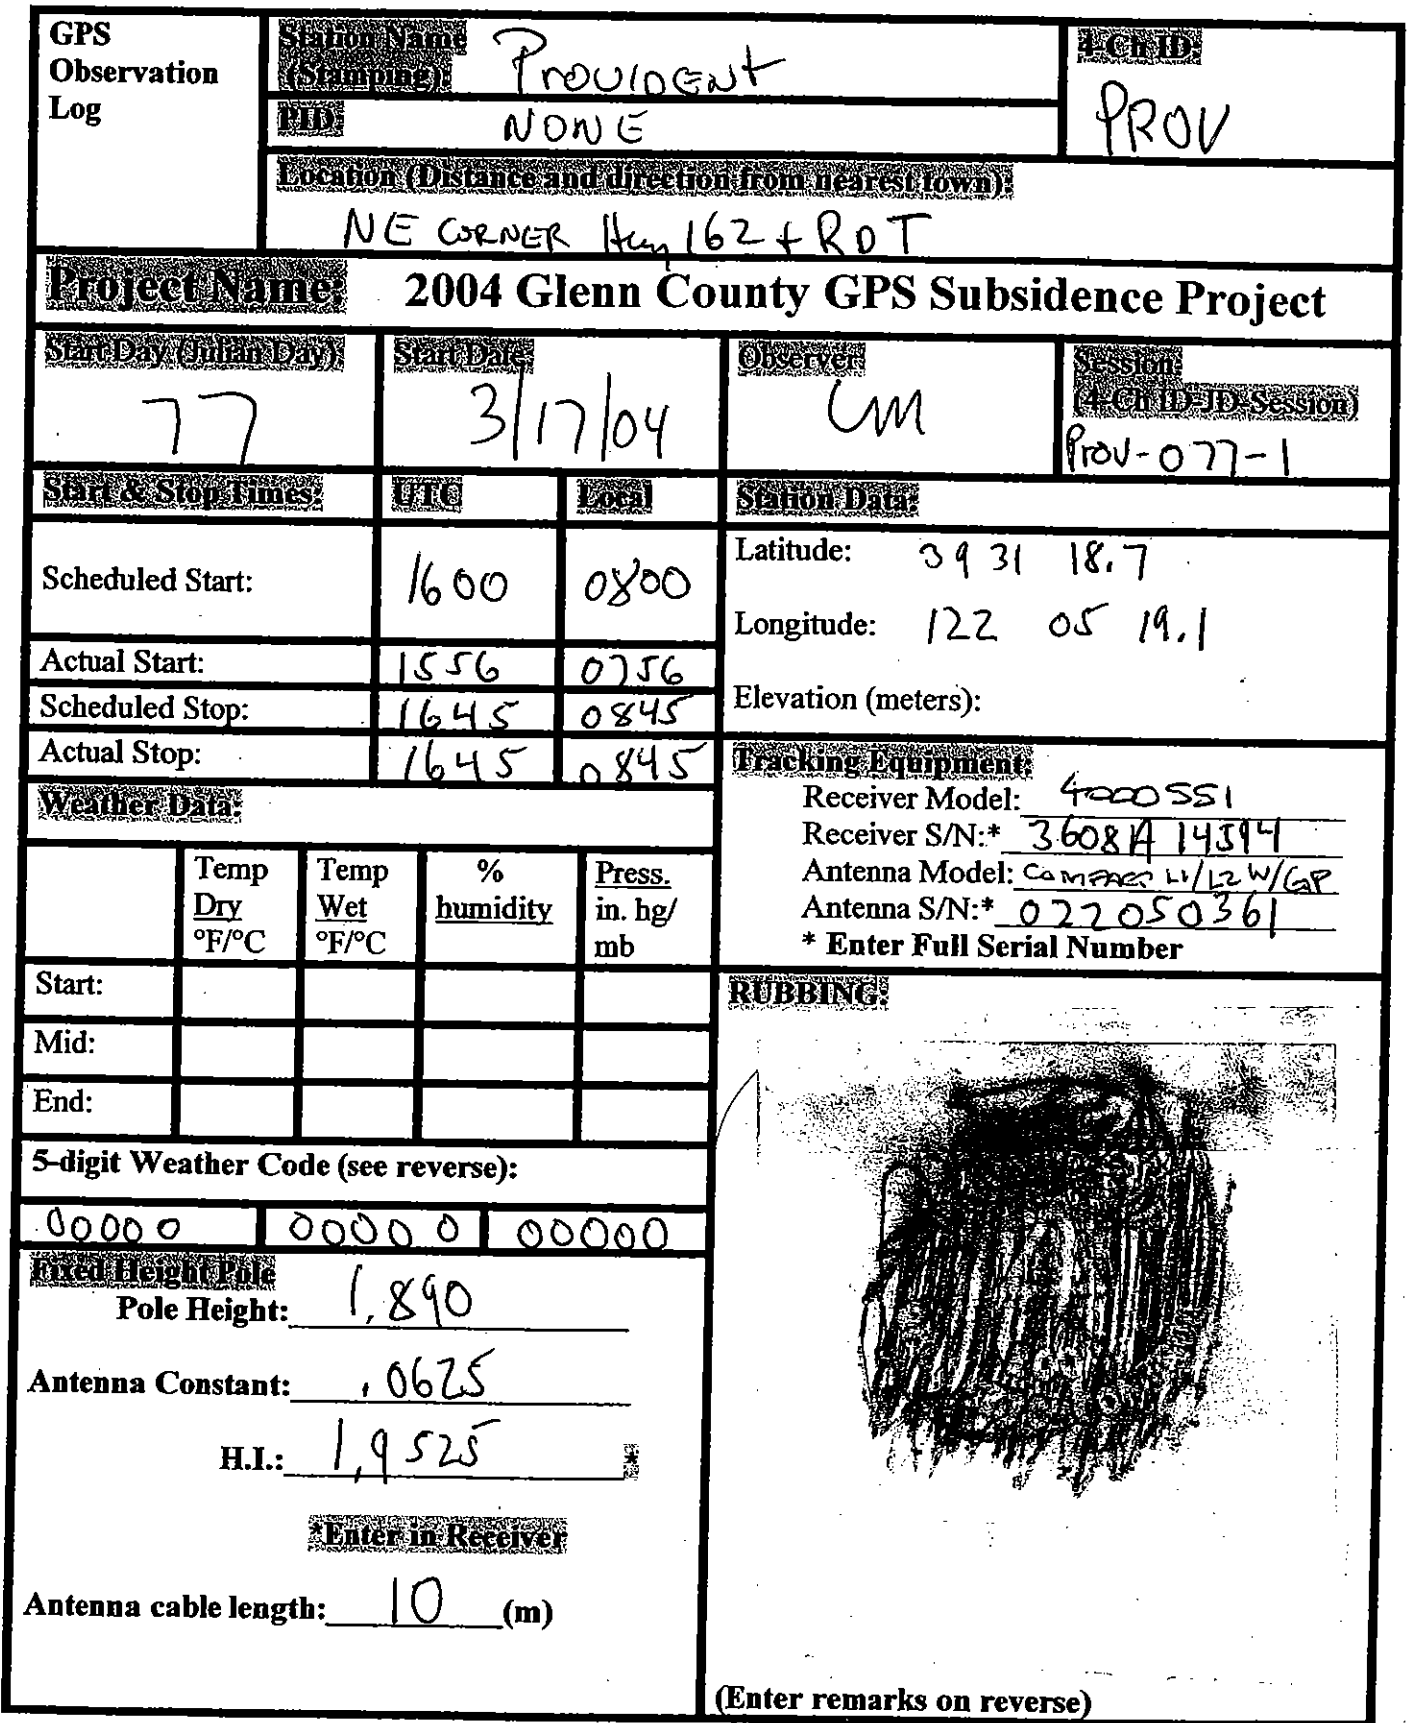 GPS
Observation
Log
Station Name
(Stamping): Provident
4-Ch ID:
PROV
PID: NONE
Location (Distance and direction from nearest town):
NE CORNER Hwy 162 + RD T
Project Name: 2004 Glenn County GPS Subsidence Project
Start Day (Julian Day):
77
Start Date
3/17/04
Observer:
CM
Session:
(4-Ch ID-JD-Session)
Prov-077-1
Start & Stop Times: UTC Local
Scheduled Start: 1600 0800
Actual Start: 1556 0756
Scheduled Stop: 1645 0845
Actual Stop: 1645 0845
Station Data:
Latitude: 39 31 18.7
Longitude: 122 05 19.1
Elevation (meters):
Tracking Equipment:
Receiver Model: 4000SSI
Receiver S/N:* 3608A 14594
Antenna Model: COMPACT L1/L2 W/GP
Antenna S/N:* 022050361
* Enter Full Serial Number
Weather Data:
Temp
Dry
°F/°C
Temp
Wet
°F/°C
%
humidity
Press.
in. hg/
mb
Start:
Mid:
End:
5-digit Weather Code (see reverse):
00000 00000 00000
Fixed Height Pole
Pole Height: 1.890
Antenna Constant: .0625
H.I.: 1.9525 *
*Enter in Receiver
Antenna cable length: 10 (m)
RUBBING:
(Enter remarks on reverse)